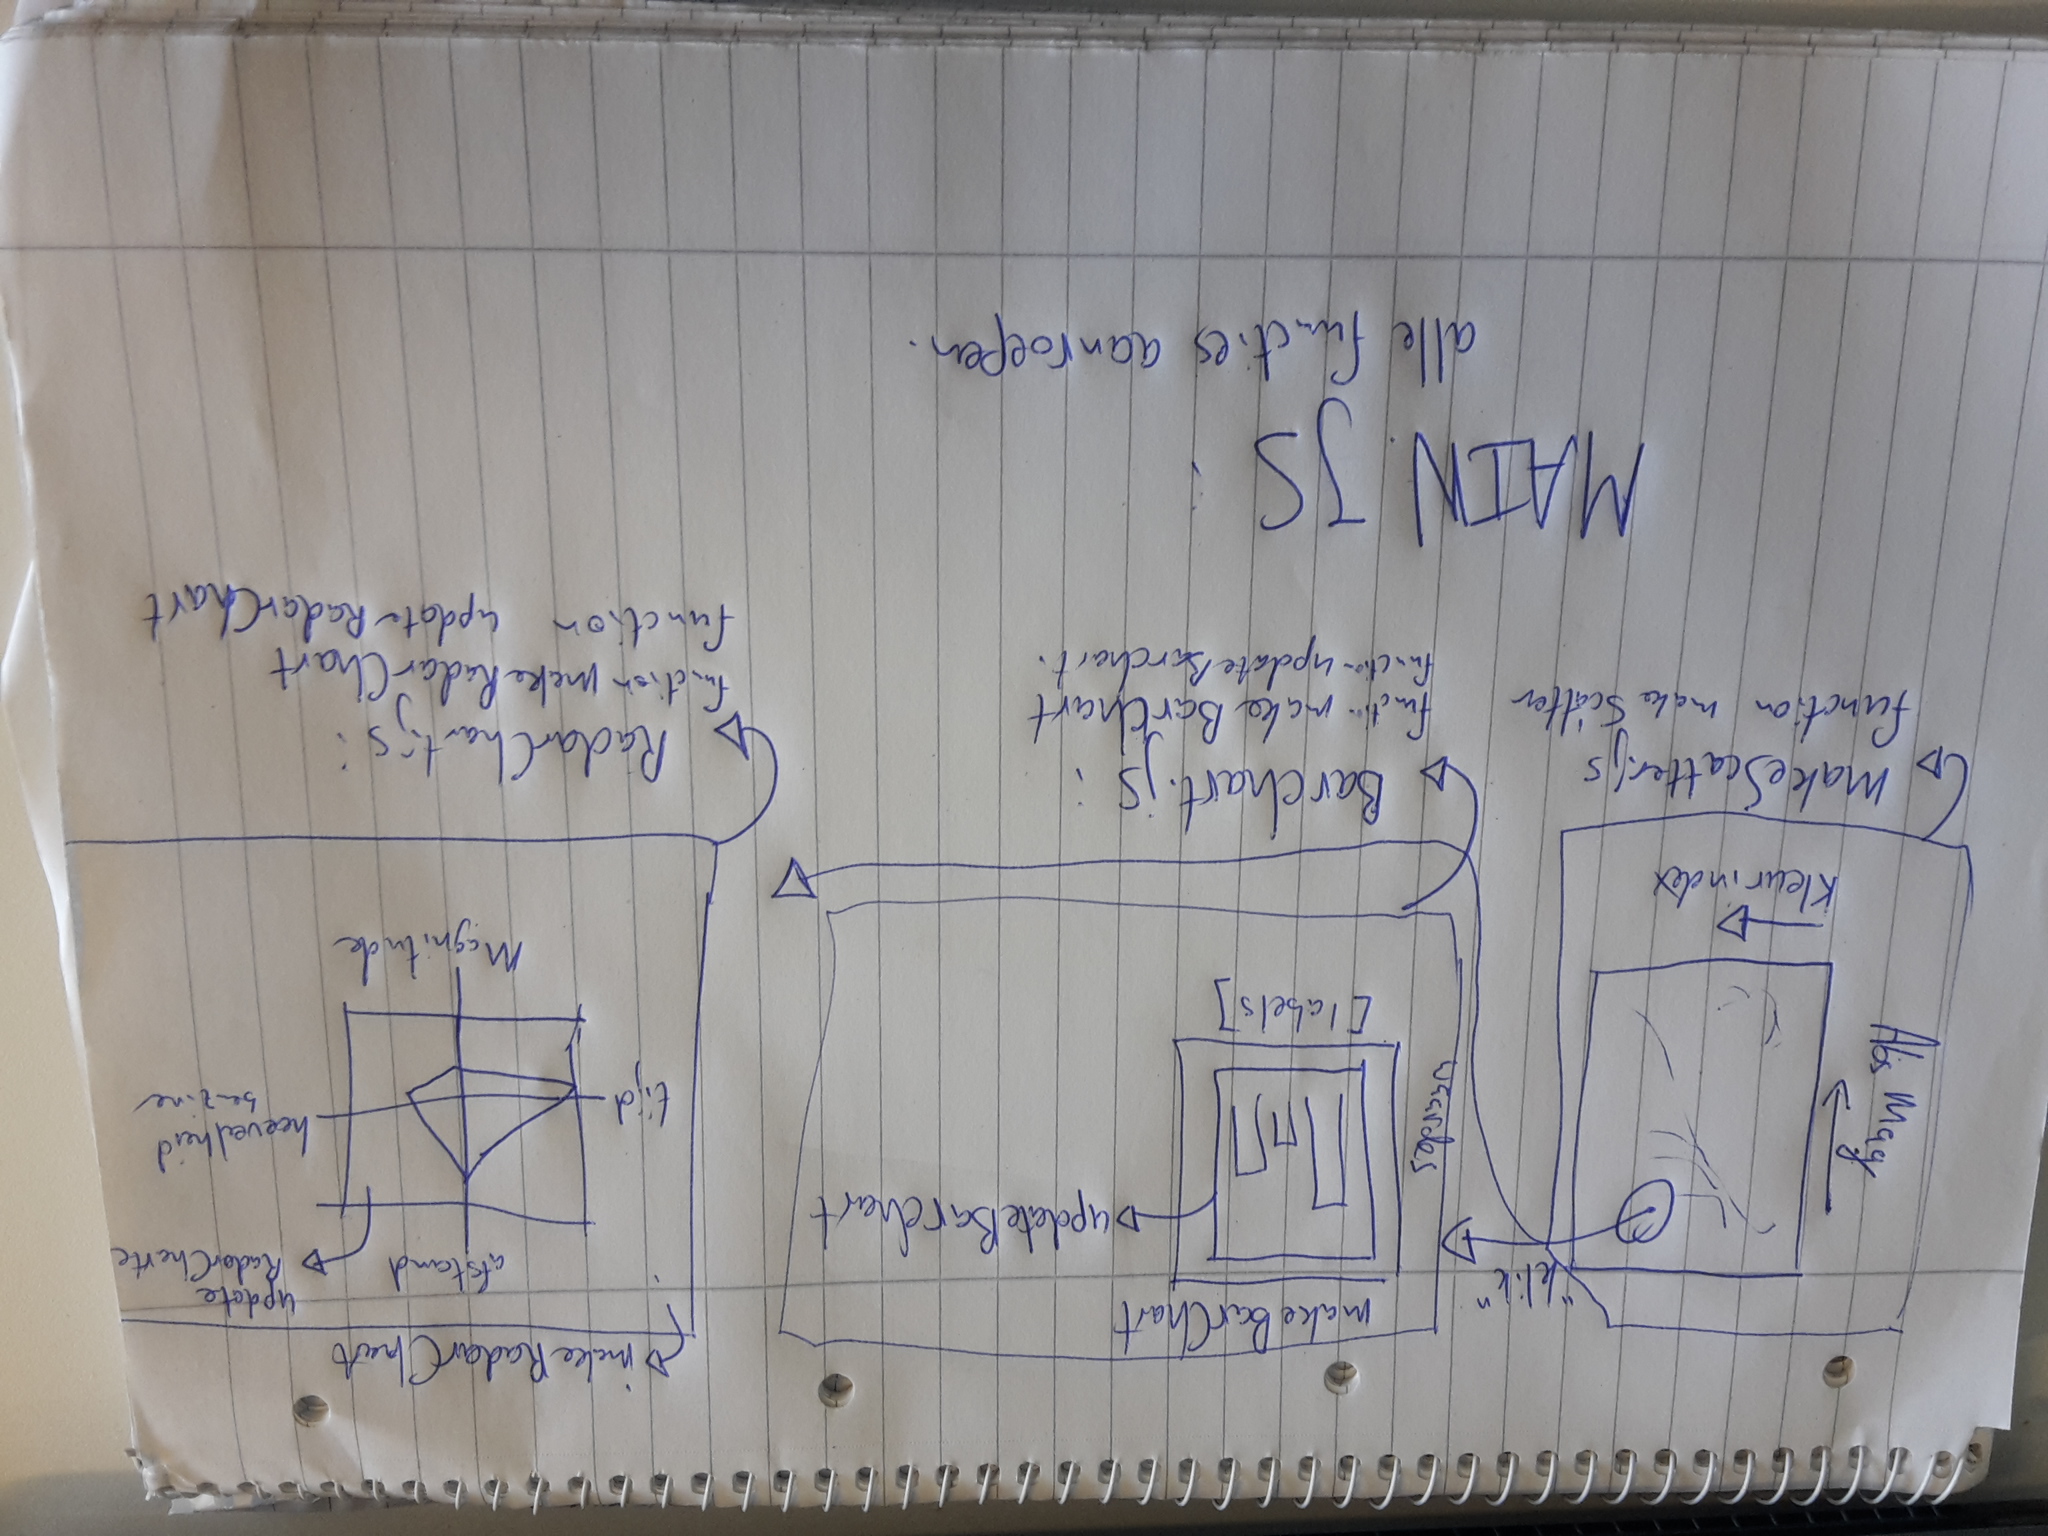 "klik"
Abs Mag
Kleurindex
makeScatter.js
function makeScatter
makeBarChart
updateBarchart
waardes
[labels]
Barchart.js :
function makeBarChart
function updateBarchart.
makeRadarChart
update
RadarCharte
afstand
tijd
hoeveelheid
benzine
Magnitude
RadarChart.js :
function makeRadarChart
function updateRadarChart
MAIN.JS :
alle functies aanroepen.